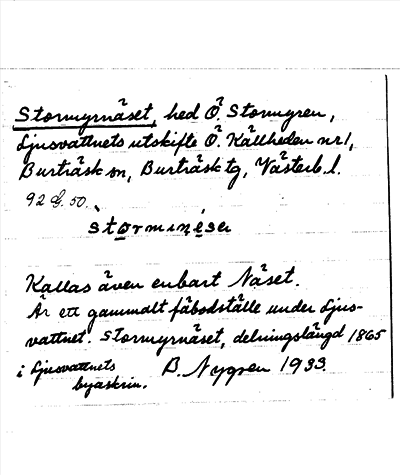 Stormyrnäset, hed Ö. Stormyren,
Ljusvattnets utskifte Ö. Källheden nr 1,
Burträsk sn, Burträsk tg, Västerb. l.
92 G. 50.
Kallas även enbart Näset.
Är ett gammalt fäbodställe under Ljus-
vattnet. Stormyrnäset, delningslängd 1865
i Ljusvattnets
byaskrin. B. Nygren 1933.